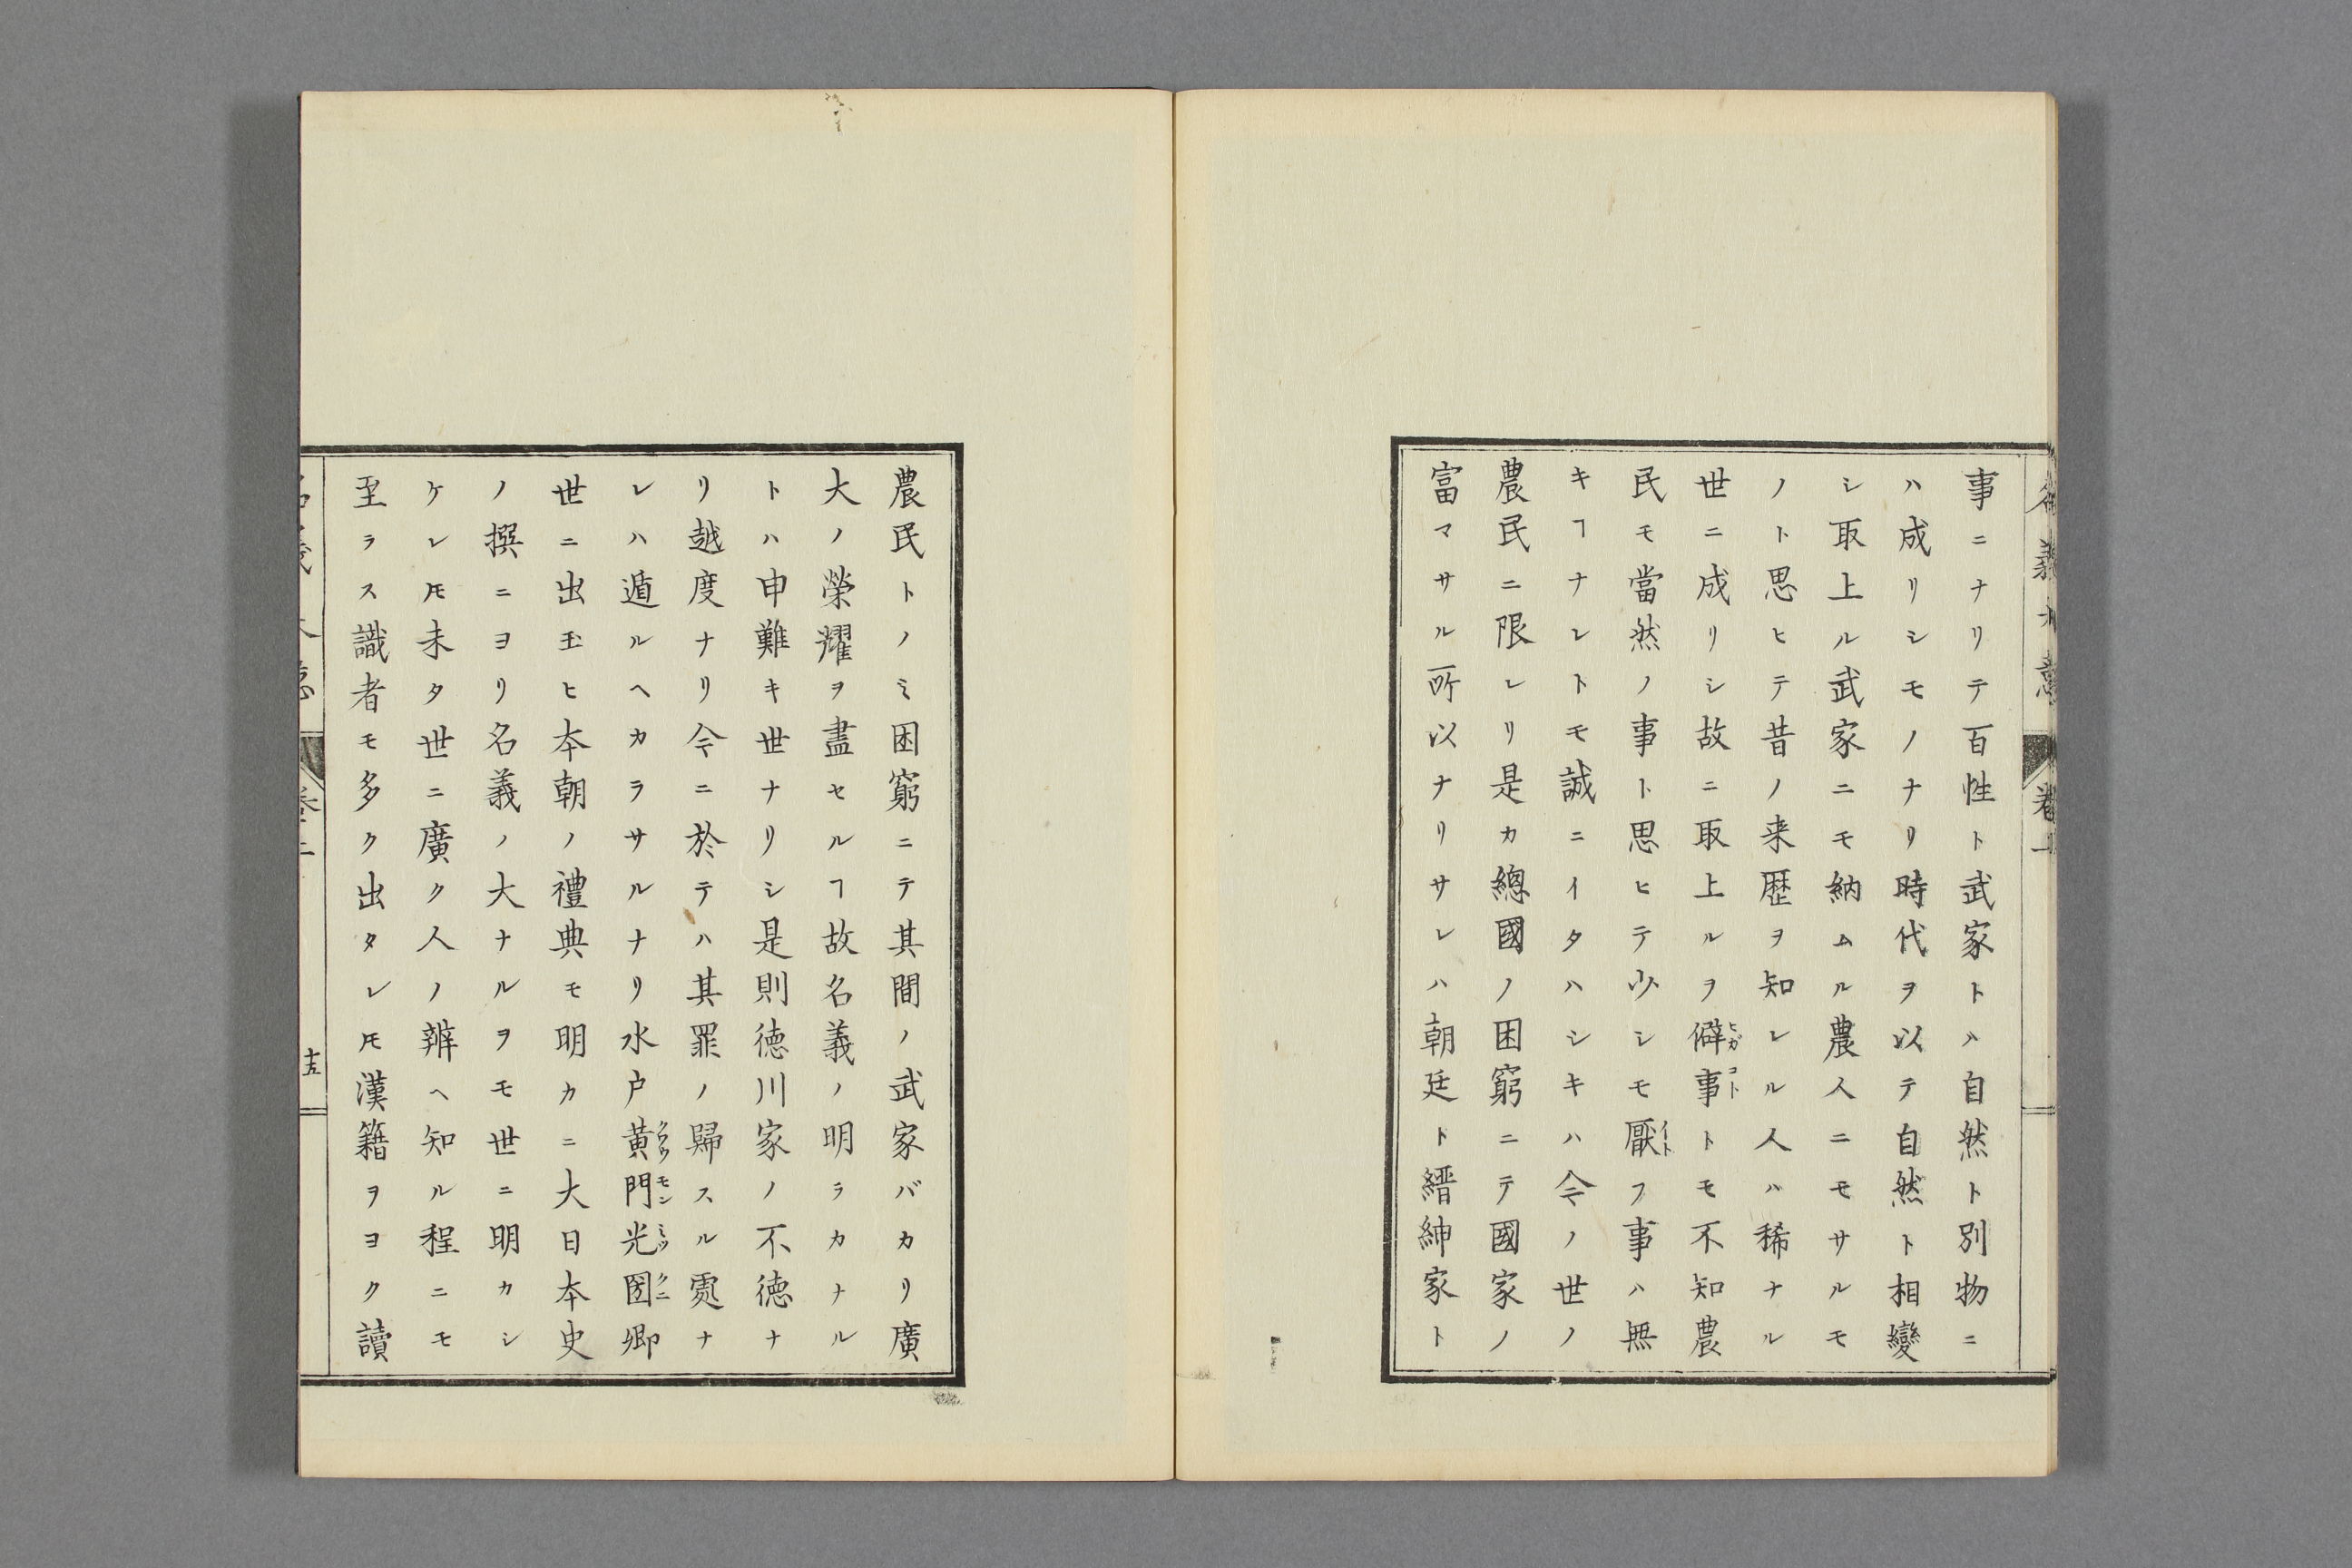 事ニナリテ百性ト武家トハ自然ト別物ニ
ハ成リシモノナリ時代ヲ以テ自然ト相變
シ取上ル武家ニモ納ムル農人ニモサルモ
ノト思ヒテ昔ノ来歴ヲ知レル人ハ稀ナル
世ニ成リシ故ニ取上ルヲ僻事トモ不知農
ヒガコト
民モ當然ノ事ト思ヒテ少シモ厭フ事ハ無
イト
キヿナレトモ誠ニイタハシキハ今ノ世ノ
農民ニ限レリ是カ總國ノ困窮ニテ國家ノ
富マサル所以ナリサレハ朝廷ト縉紳家ト
農民トノミ困窮ニテ其間ノ武家バカリ廣
大ノ榮耀ヲ盡セルヿ故名義ノ明ラカナル
トハ申難キ世ナリシ是則徳川家ノ不徳ナ
リ越度ナリ今ニ於テハ其罪ノ歸スル処ナ
レハ遁ルヘカラサルナリ水戸黄門光圀卿
クワウモンミツクニ
世ニ出玉ヒ本朝ノ禮典モ明カニ大日本史
ノ撰ニヨリ名義ノ大ナルヲモ世ニ明カシ
ケレ𪜈未タ世ニ廣ク人ノ辨ヘ知ル程ニモ
至ラス識者モ多ク出タレ𪜈漢籍ヲヨク讀
十五